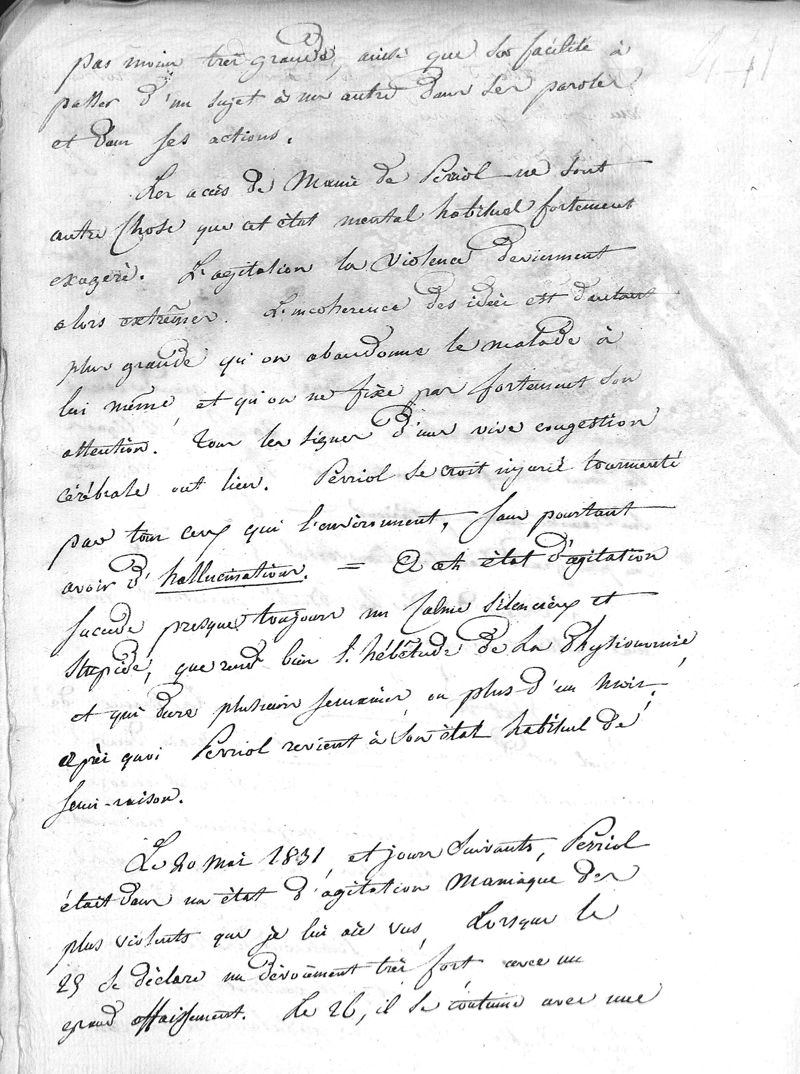 pas moins très grande, ainsi que sa facilité à
passer d'un sujet à un autre dans ses paroles
et dans ses actions.
Les accès de Manie de Perriol ne sont
autre chose que cet état mental habituel fortement
exagéré. L'agitation la violence deviennent
alors extrêmes. L'incoherence des idées est d'autant
plus grande qu'on abandonne le malade à
lui même, et qu'on ne fixe pas fortement son
attention. Tous les signes d'une vive congestion
cérébrale ont lieu. Perriol se croit injurié tourmenté
par tous ceux qui l'environnent, sans pourtant
avoir d'hallucinations. = A cet état d'agitation
succede presque toujours un calme silencieux et
stupide, que rend bien l'hébétude de la physionomie
et qui dure plusieurs semaines, ou plus d'un mois,
après quoi Perriol revient à son état habituel de
semi-raison.
Le 20 mai 1831, et jours suivants, Perriol
était dans un état d'agitation Maniaque des
plus violents que je lui aie vus, Lorsque le
25 se déclare un dévoiement très fort avec un
grand affaissement. Le 26, il se continue avec une